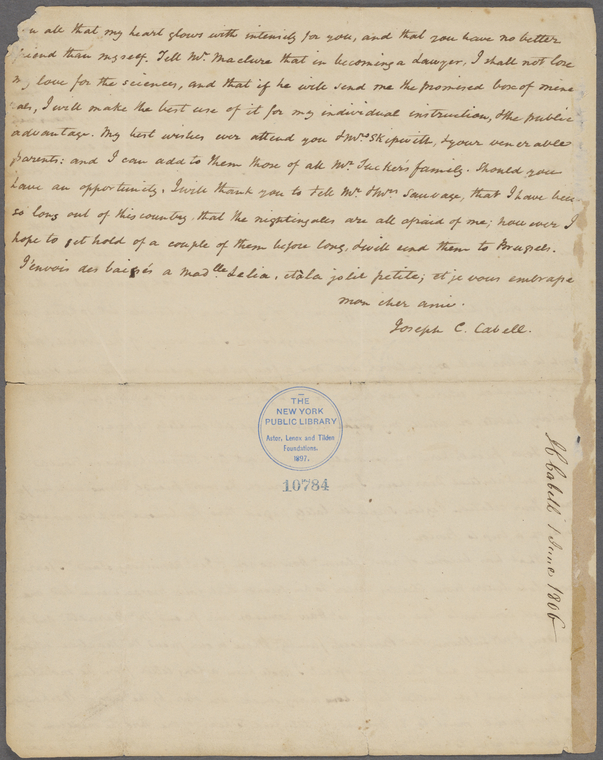 you all that my heart glows with intensity for you, and that you have no better
friend than myself. Tell Mr. Maclure that in becoming a Lawyer, I shall not lose
my love for the sciences, and that if he will send me the promised box of mine
als, I will make the best use of it for my individual instruction, & the public
advantage. My best wishes ever attend you & Mrs. Skipwith, & your venerable
parents: and I can add to them those of all Mr. Tucker's family. Should you
have an opportunity, I will thank you to tell Mr. & Mrs. Sauvage, that I have been
so long out of this country, that the nightingales are all afraid of me; however I
hope to get hold of a couple of them before long, & will send them to Brussels.
J'envois des baisés a Madlle. Lelia, et à la jolie petite; et je vous embrasse
mon cher ami.
Joseph C. Cabell.
THE
NEW YORK
PUBLIC LIBRARY
Astor, Lenox and Tilden
Foundations.
1897.
10784
Cabell 1 June 1806